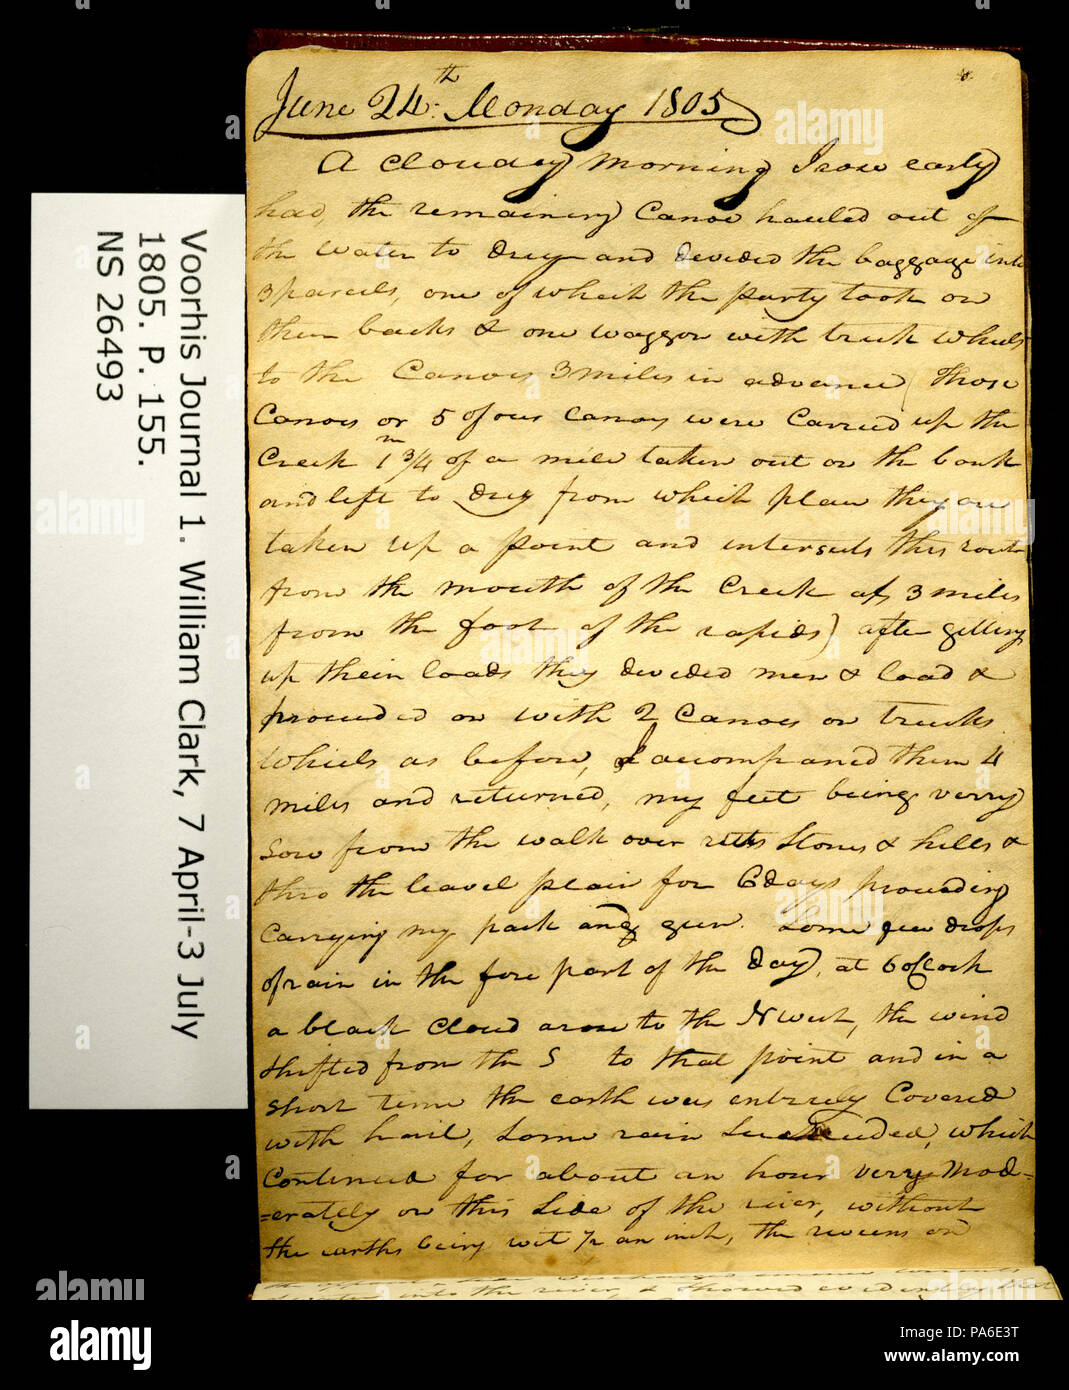 June 24th Monday 1805
A Cloudey morning I rose early
had, the remaining Canoe hauled out of
the water to dry and devided the baggage into
3 parcels, one of which the party took on
their backs & one waggon with truk wheels
to the Canoes 3 miles in advance (Those
Canoes or 5 of our Canoes were Carried up the
Creek 1 3/4 of a mile taken out on the bank
m
and left to dry from which place they are
taken up a point and intersects this rout
from the mouth of the Creek at 3 miles
from the foot of the rapids) after getting
up their loads they devided men & load &
proceeded on with 2 Canoes on trucks
Wheels as before, I accompaned them 4
miles and returned, my feet being verry
Sore from the walk over ruts Stones & hills &
thro the leavel plain for 6 days proceeding
Carrying my pack and gun. Some few drops
of rain in the fore part of the day, at 6 oClock
a black Cloud arose to the N West, the wind
shifted from the S to that point and in a
short time the earth was entirely Covered
with hail, Some rain Succeeded, which
Continued for about an hour very Mod=
=erately on this Side of the river, without
the earths being wet 1/2 an inch, the riveens on
into the river, & Showed evidently that
Voorhis Journal 1. William Clark, 7 April-3 July
1805. P. 155.
NS 26493
alamy
PA6E3T
www.alamy.com